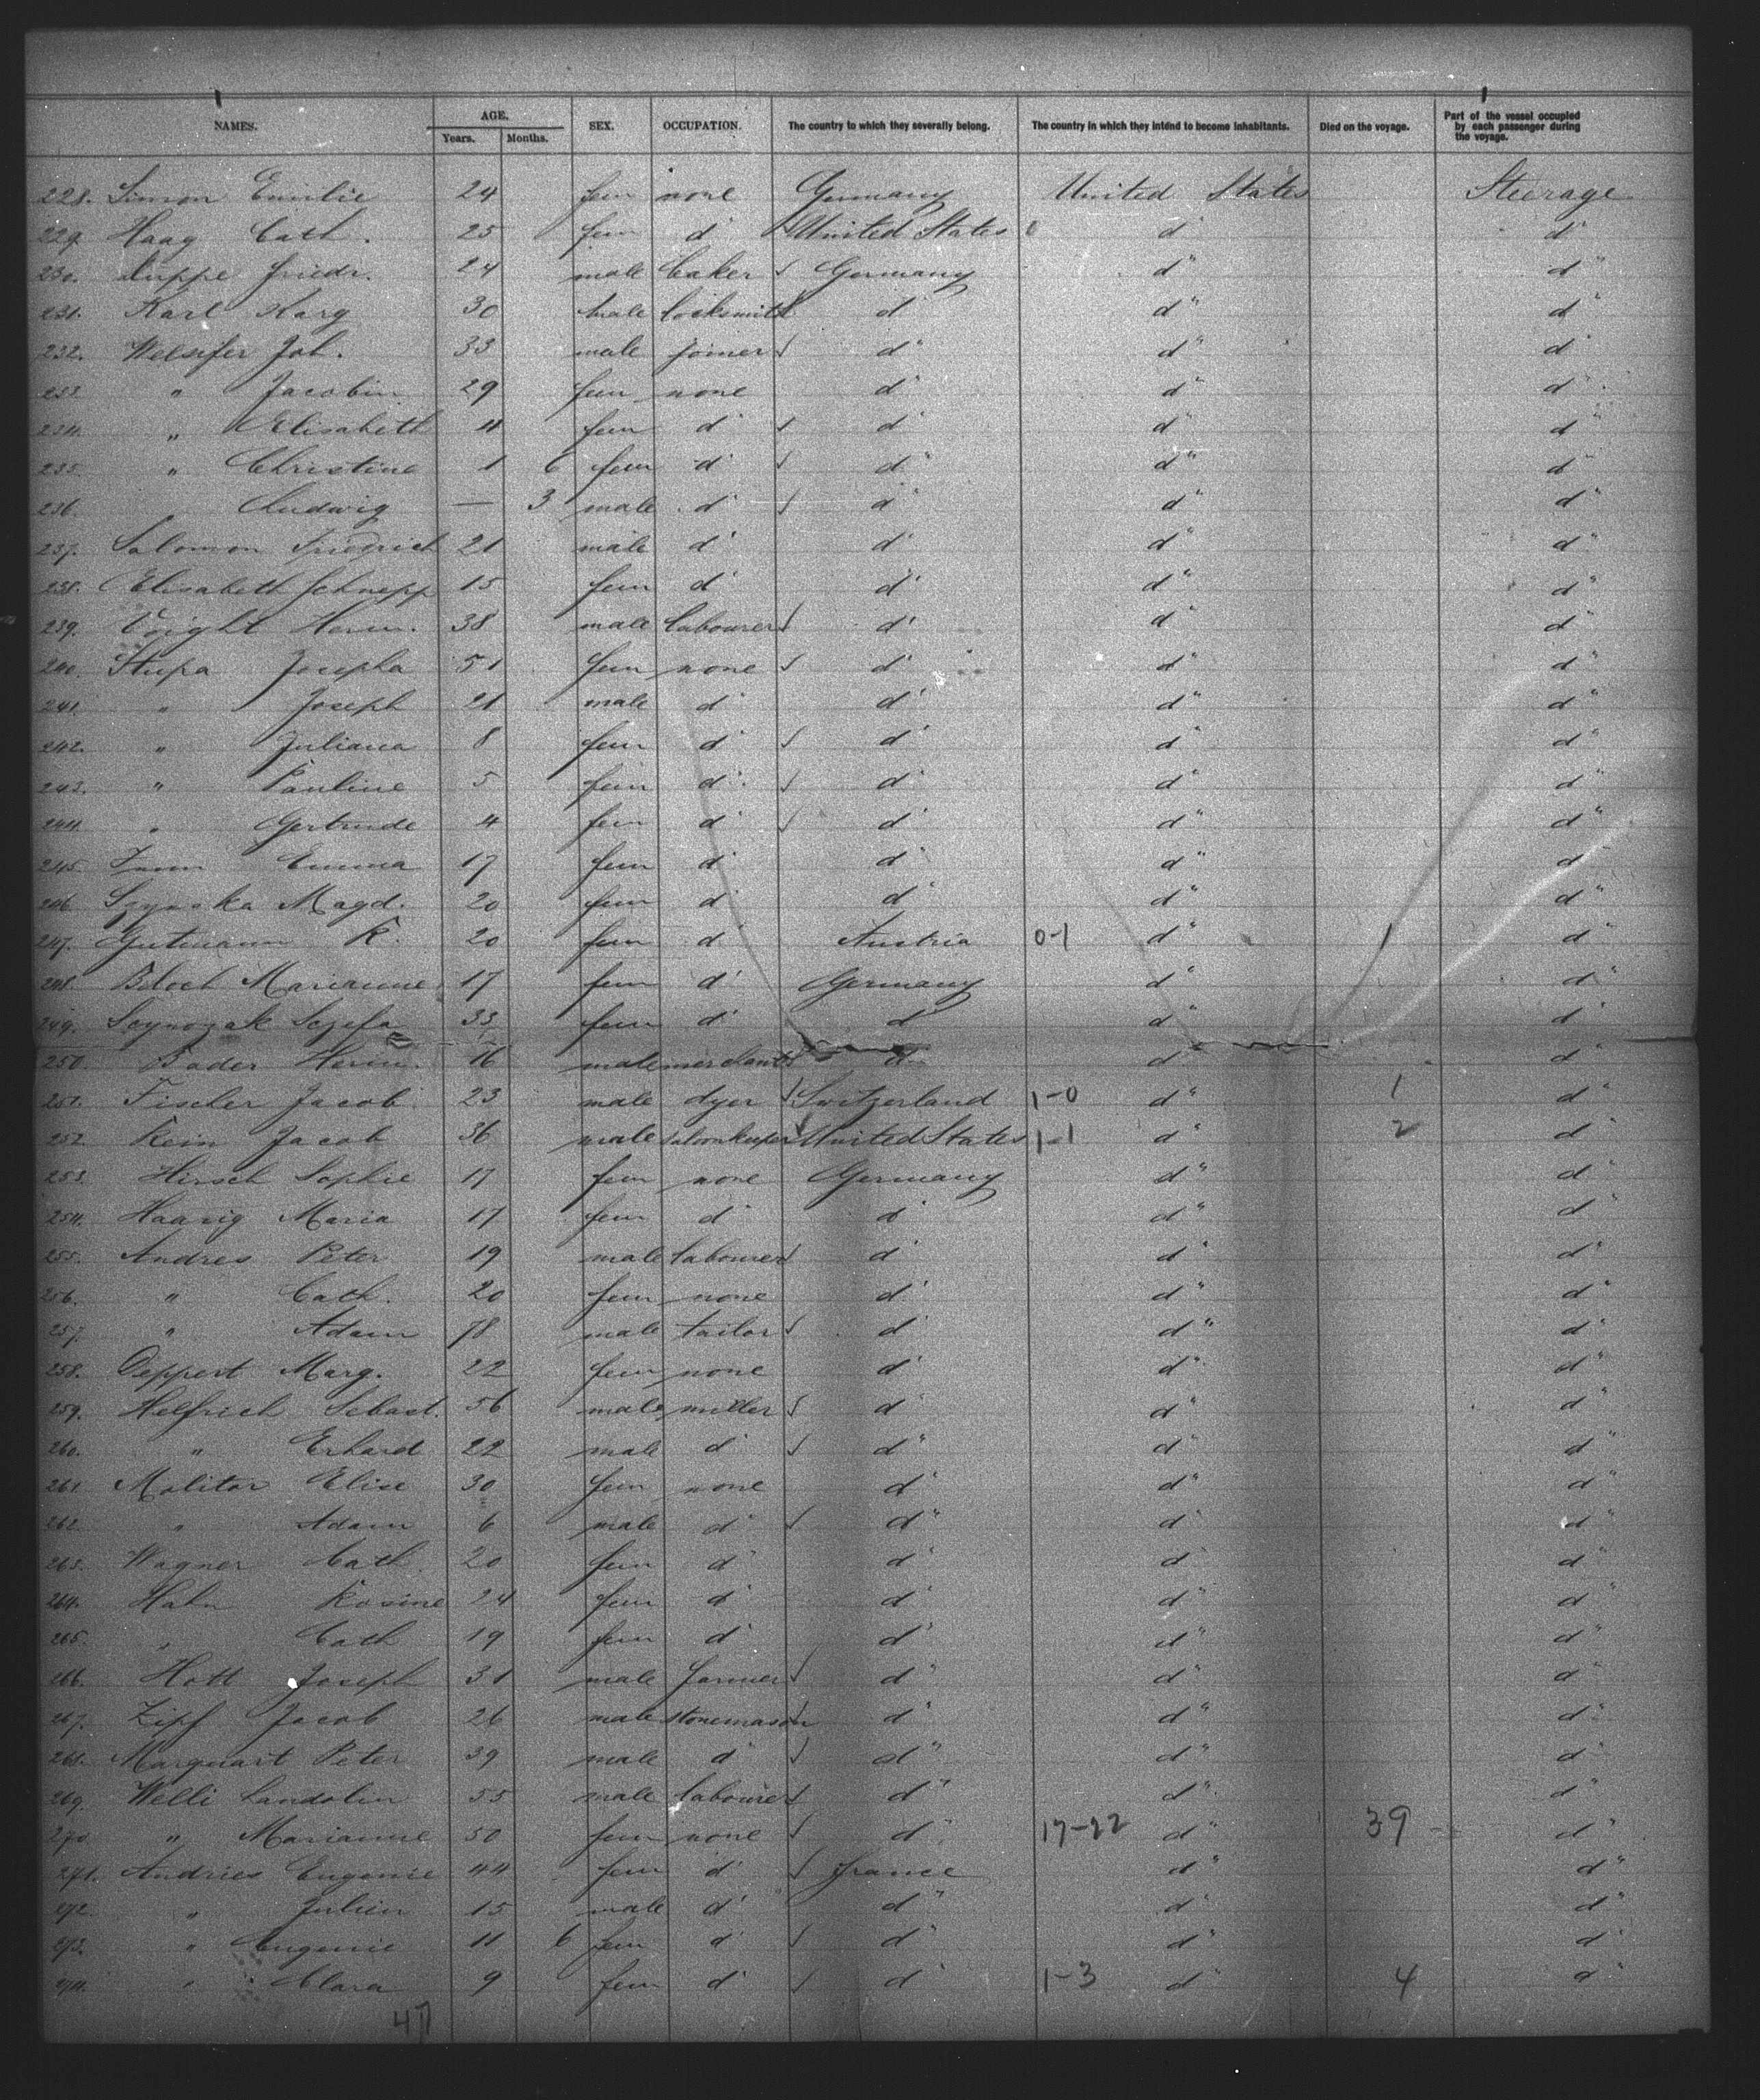 NAMES. AGE. SEX. OCCUPATION. The country to which they severally belong. The country in which they intend to become inhabitants. Died on the voyage. Part of the vessel occupied by each passenger during the voyage.
Years. Months.
228. Simon Emilie 24 fem none Germany United States Steerage
229. Haag Cath. 25 fem d° United States d° d°
230. Friedr. 24 male baker Germany d" d"
231. Karl Karg 30 male locksmith d° d" d°
232. Welsifer Joh. 33 male joiner d" d" d°
233. " Jacobin 29 fem none d° d" d°
234. " Elisabeth 4 fem d° d° d" d"
235. " Christine 1 6 fem d° d" d" d°
236. " Ludwig — 3 male d° d° d" d"
237. Salomon Friedrich 21 male d° d° d" d"
238. Elisabeth Schnepp 15 fem d° d° d" d"
239. Voight Herm. 38 male labourer d° d" d"
240. Stupa Josepha 51 fem none d° d" d"
241. " Joseph 21 male d° d° d" d"
242. " Juliana 8 fem d° d° d" d"
243. " Pauline 5 fem d° d° d" d"
244. " Gertrude 4 fem d° d° d" d"
245. Emma 17 fem d° d° d" d°
246. Magd. 20 fem d° d° d" d"
247. Gutmann K. 20 fem d° Austria 0-1 d" 1 d"
248. Bloch Marianne 17 fem d° Germany d° d"
249. 33 fem d° d° d" d°
250. Bader Herm. 16 male merchant d° d° d"
251. Fischer Jacob 23 male dyer Switzerland 1-0 d" 1 d"
252. Kein Jacob 36 male saloonkeeper United States 1-1 d" 2 d°
253. Hirsch Sophie 17 fem none Germany d" d°
254. Haarig Maria 17 fem d° d° d" d"
255. Andres Peter 19 male labourer d° d" d"
256. " Cath. 20 fem none d° d" d"
257. " Adam 18 male tailor d° d" d"
258. Deppert Marg. 22 fem none d° d" d"
259. Helfrich Sebast. 56 male miller d° d" d"
260. " Erhard 22 male d° d" d" d"
261. Molitor Elise 30 fem none d° d" d"
262. " Adam 6 male d° d" d° d"
263. Wagner Cath. 20 fem d° d° d° d"
264. Hahn Rosine 24 fem d° d° d" d"
265. " Cath 19 fem d° d° d" d"
266. Hott Joseph 31 male farmer d" d" d"
267. Zipf Jacob 26 male stonemason d° d" d"
268. Marquart Peter 39 male d° d" d" d°
269. Welli Landolin 55 male labourer d" d" d"
270. " Marianne 50 fem none d" 17-22 d" 39 d"
271. Andries Eugenie 44 fem d° France d" d"
272. " Julien 15 male d° d" d° d"
273. " Eugenie 11 6 fem d° d" d" d"
274. " Clara 9 fem d° d° 1-3 d° 4 d"
47